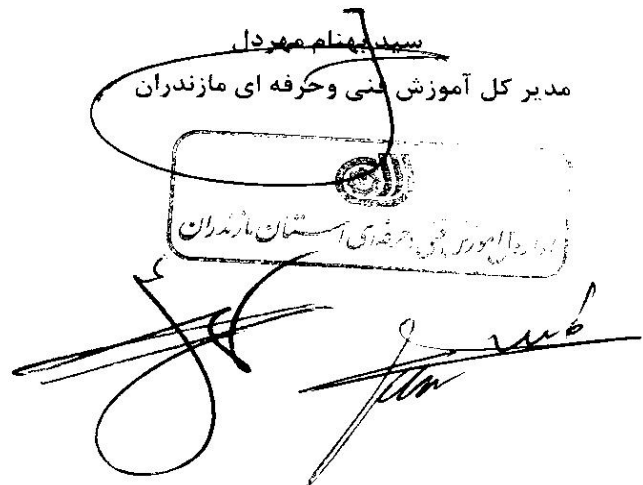 سید بهنام مهردل
مدیر کل آموزش فنی وحرفه ای مازندران
اداره کل آموزش فنی و حرفه‌ای استان مازندران